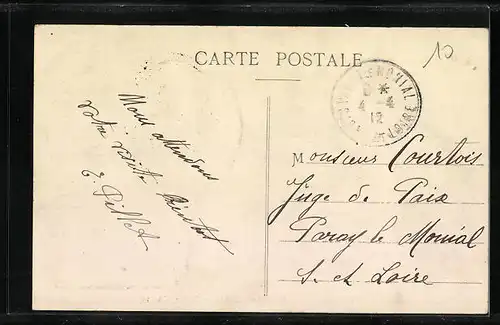 CARTE POSTALE
10
4 - 4
12
Nous attendons
votre visite bientôt
E. Pillet
Monsieur Courtois
Juge de Paix
Paray le Monial
S. et Loire